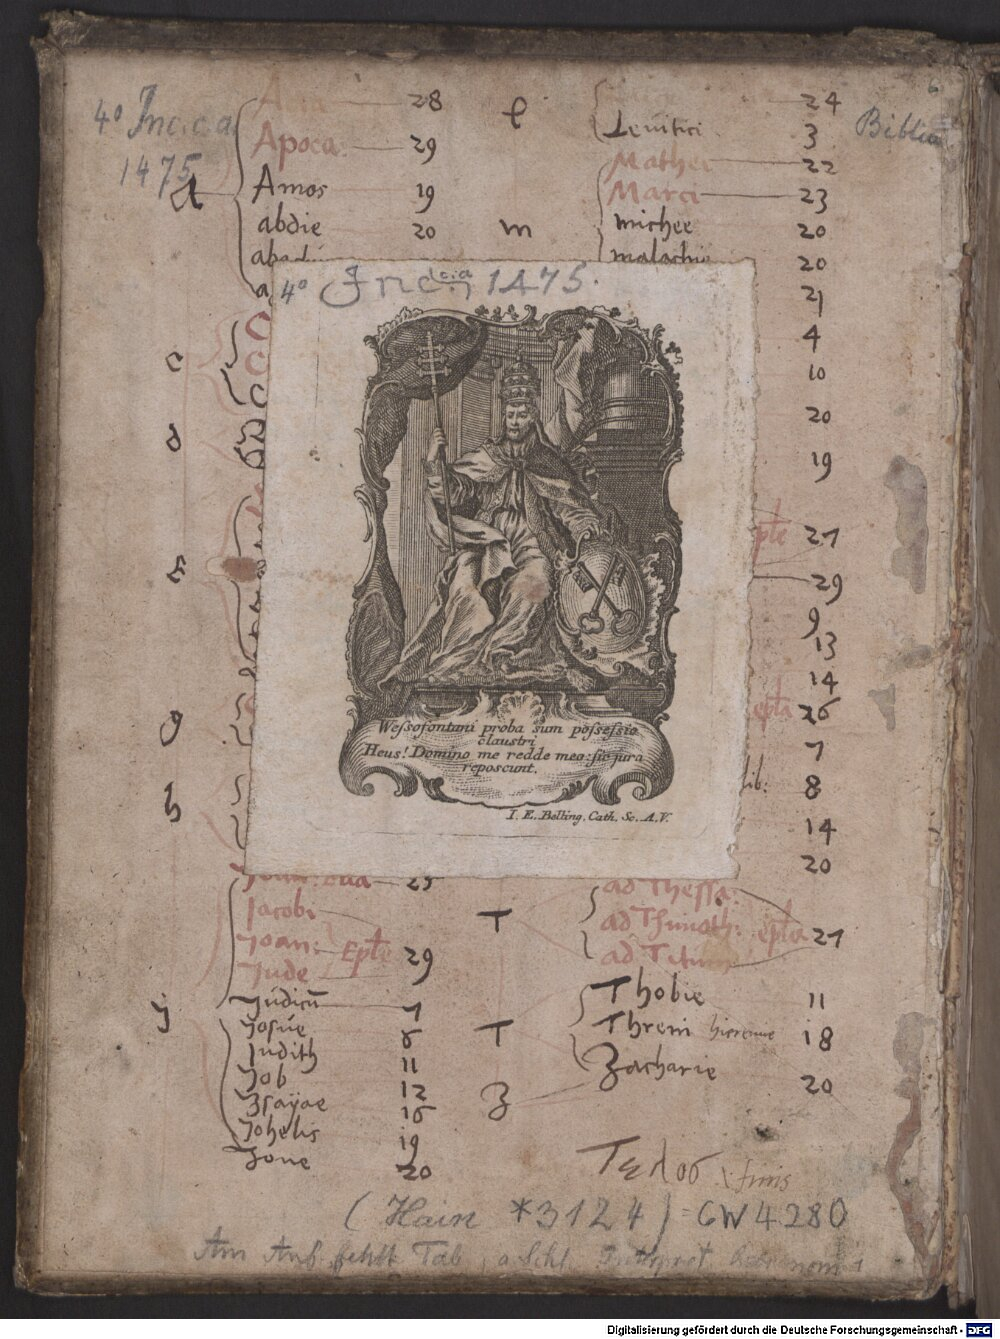 4° Inc. c. a.
1475
Biblia
A
28
Apoca: 29
Amos 19
abdie 20
c
d
e
g
h
Jacobi
Joan: Epl̄e 29
Jude
Judicū 7
j
Josue 6
Judith 11
Job 12
Isayae 16
Johelis 19
Jone 20
l
24
Levitici 3
m
Mathei 22
Marci 23
michee 20
malachie 20
21
4
10
20
19
epl̄e 21
29
9
13
14
epl̄a 26
7
lib: 8
14
20
T
ad Thessa:
ad Thimoth: epl̄a 21
ad Titum
T
Thobie 11
Threni hieremie 18
Z
Zacharie 20
Τελοσ finis
(Hain *3124) = GW 4280
Am Anf. fehlt Tab.
4° Inc. c.a. 1475.
Wessofontani proba sum possessio
claustri
Heus! Domino me redde meo: sic jura
reposcunt.
I. E. Belling. Cath. Sc. A.V.
Digitalisierung gefördert durch die Deutsche Forschungsgemeinschaft - DFG